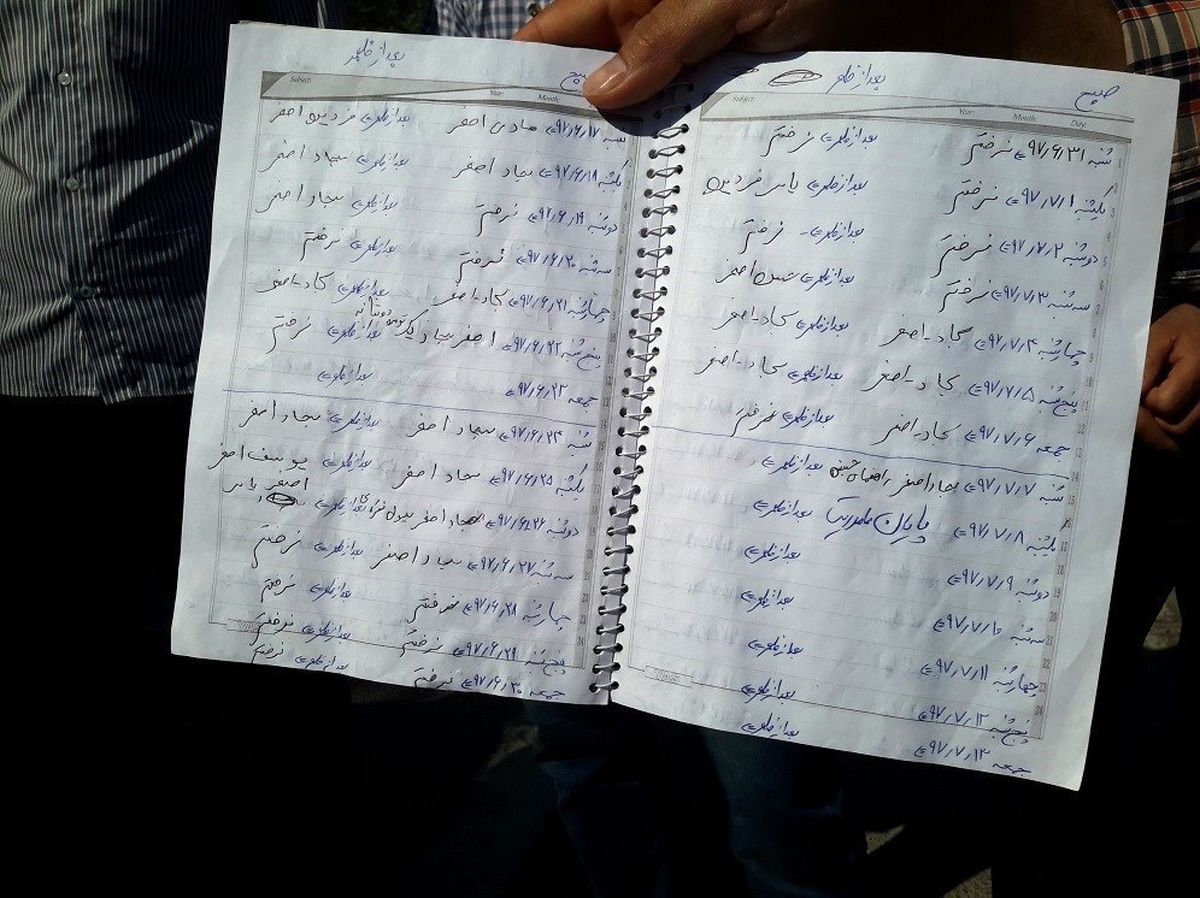 بعد از ظهر
صبح
Subject:
Year: Month:
شنبه ۹۷/۶/۱۷ هادی اصغر بعدازظهر فردین اصغر
یکشنبه ۹۷/۶/۱۸ سجاد اصغر بعدازظهر سجاد اصغر
دوشنبه ۹۷/۶/۱۹ نرفتم بعدازظهر سجاد اصغر
سه شنبه ۹۷/۶/۲۰ نرفتم بعدازظهر نرفتم
چهارشنبه ۹۷/۶/۲۱ سجاد - اصغر بعدازظهر سجاد - اصغر
پنج شنبه ۹۷/۶/۲۲ اصغر سجاد بعدازظهر نرفتم
جمعه ۹۷/۶/۲۳ بعدازظهر
شنبه ۹۷/۶/۲۴ سجاد اصغر بعدازظهر سجاد اصغر
یکشنبه ۹۷/۶/۲۵ سجاد اصغر بعدازظهر یوسف اصغر
دوشنبه ۹۷/۶/۲۶ سجاد اصغر بعدازظهر اصغر یاسر
سه شنبه ۹۷/۶/۲۷ سجاد اصغر بعدازظهر نرفتم
چهارشنبه ۹۷/۶/۲۸ نرفتم بعدازظهر نرفتم
پنج شنبه ۹۷/۶/۲۹ نرفتم بعدازظهر نرفتم
جمعه ۹۷/۶/۳۰ نرفتم بعدازظهر نرفتم
صبح بعد از ظهر
Subject: Year: Month: Day:
شنبه ۹۷/۶/۳۱ نرفتم بعدازظهر نرفتم
یکشنبه ۹۷/۷/۱ نرفتم بعدازظهر یاسر فردین
دوشنبه ۹۷/۷/۲ نرفتم بعدازظهر نرفتم
سه شنبه ۹۷/۷/۳ نرفتم بعدازظهر اصغر
چهارشنبه ۹۷/۷/۴ سجاد - اصغر بعدازظهر سجاد - اصغر
پنج شنبه ۹۷/۷/۵ سجاد - اصغر بعدازظهر سجاد - اصغر
جمعه ۹۷/۷/۶ سجاد - اصغر بعدازظهر نرفتم
شنبه ۹۷/۷/۷ سجاد اصغر بعدازظهر
یکشنبه ۹۷/۷/۸ پایان ماموریت بعدازظهر
دوشنبه ۹۷/۷/۹ بعدازظهر
سه شنبه ۹۷/۷/۱۰ بعدازظهر
چهارشنبه ۹۷/۷/۱۱ بعدازظهر
پنج شنبه ۹۷/۷/۱۲ بعدازظهر
جمعه ۹۷/۷/۱۳ بعدازظهر